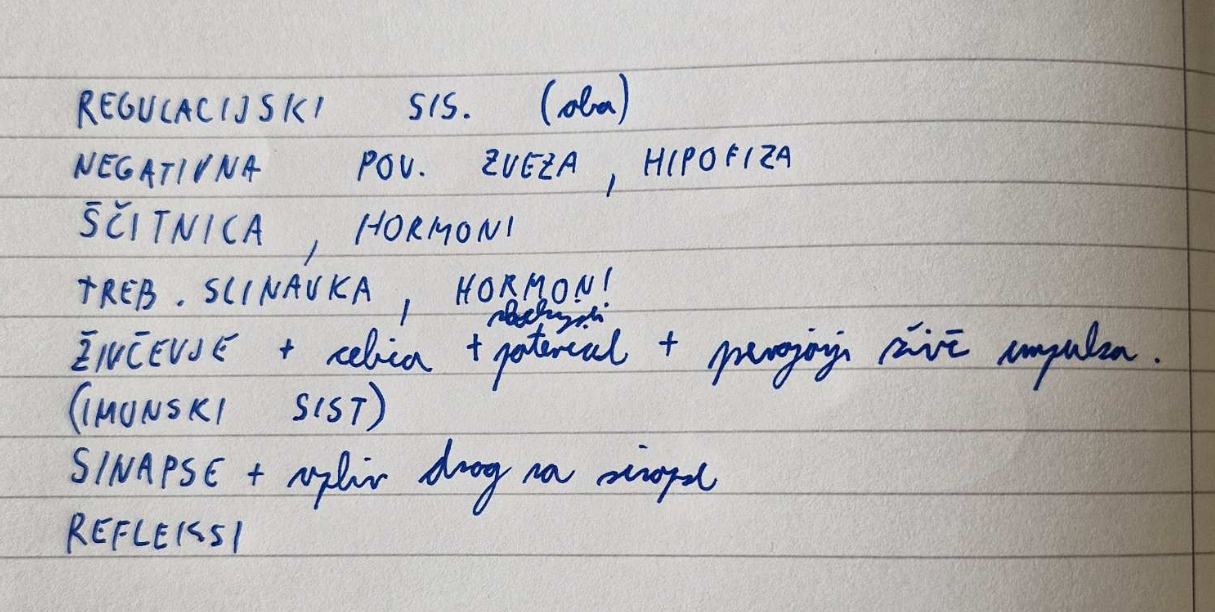 REGULACIJSKI SIS. (oba)
NEGATIVNA POV. ZVEZA, HIPOFIZA
ŠČITNICA, HORMONI
TREB. SLINAVKA, HORMONI
ŽIVČEVJE + celica + potencial + živč impulza.
(IMUNSKI SIST)
SINAPSE + vpliv drog na sinapse
REFLEKSI